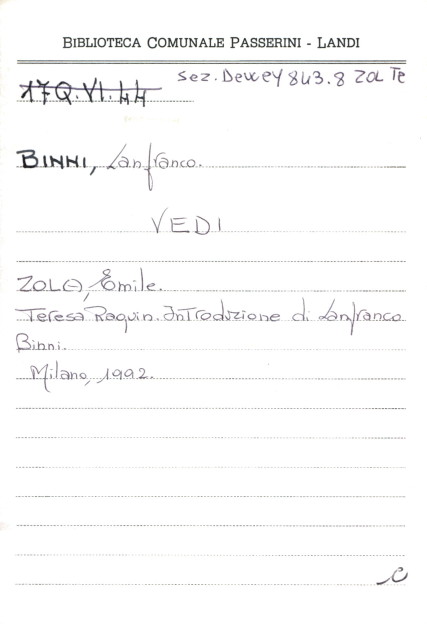 BIBLIOTECA COMUNALE PASSERINI - LANDI
Sez. Dewey 843.8 ZOL Te
17Q.VI.44
BINNI, Lanfranco.
VEDI
ZOLA, Emile.
Teresa Raquin. Introduzione di Lanfranco
Binni.
Milano, 1992.